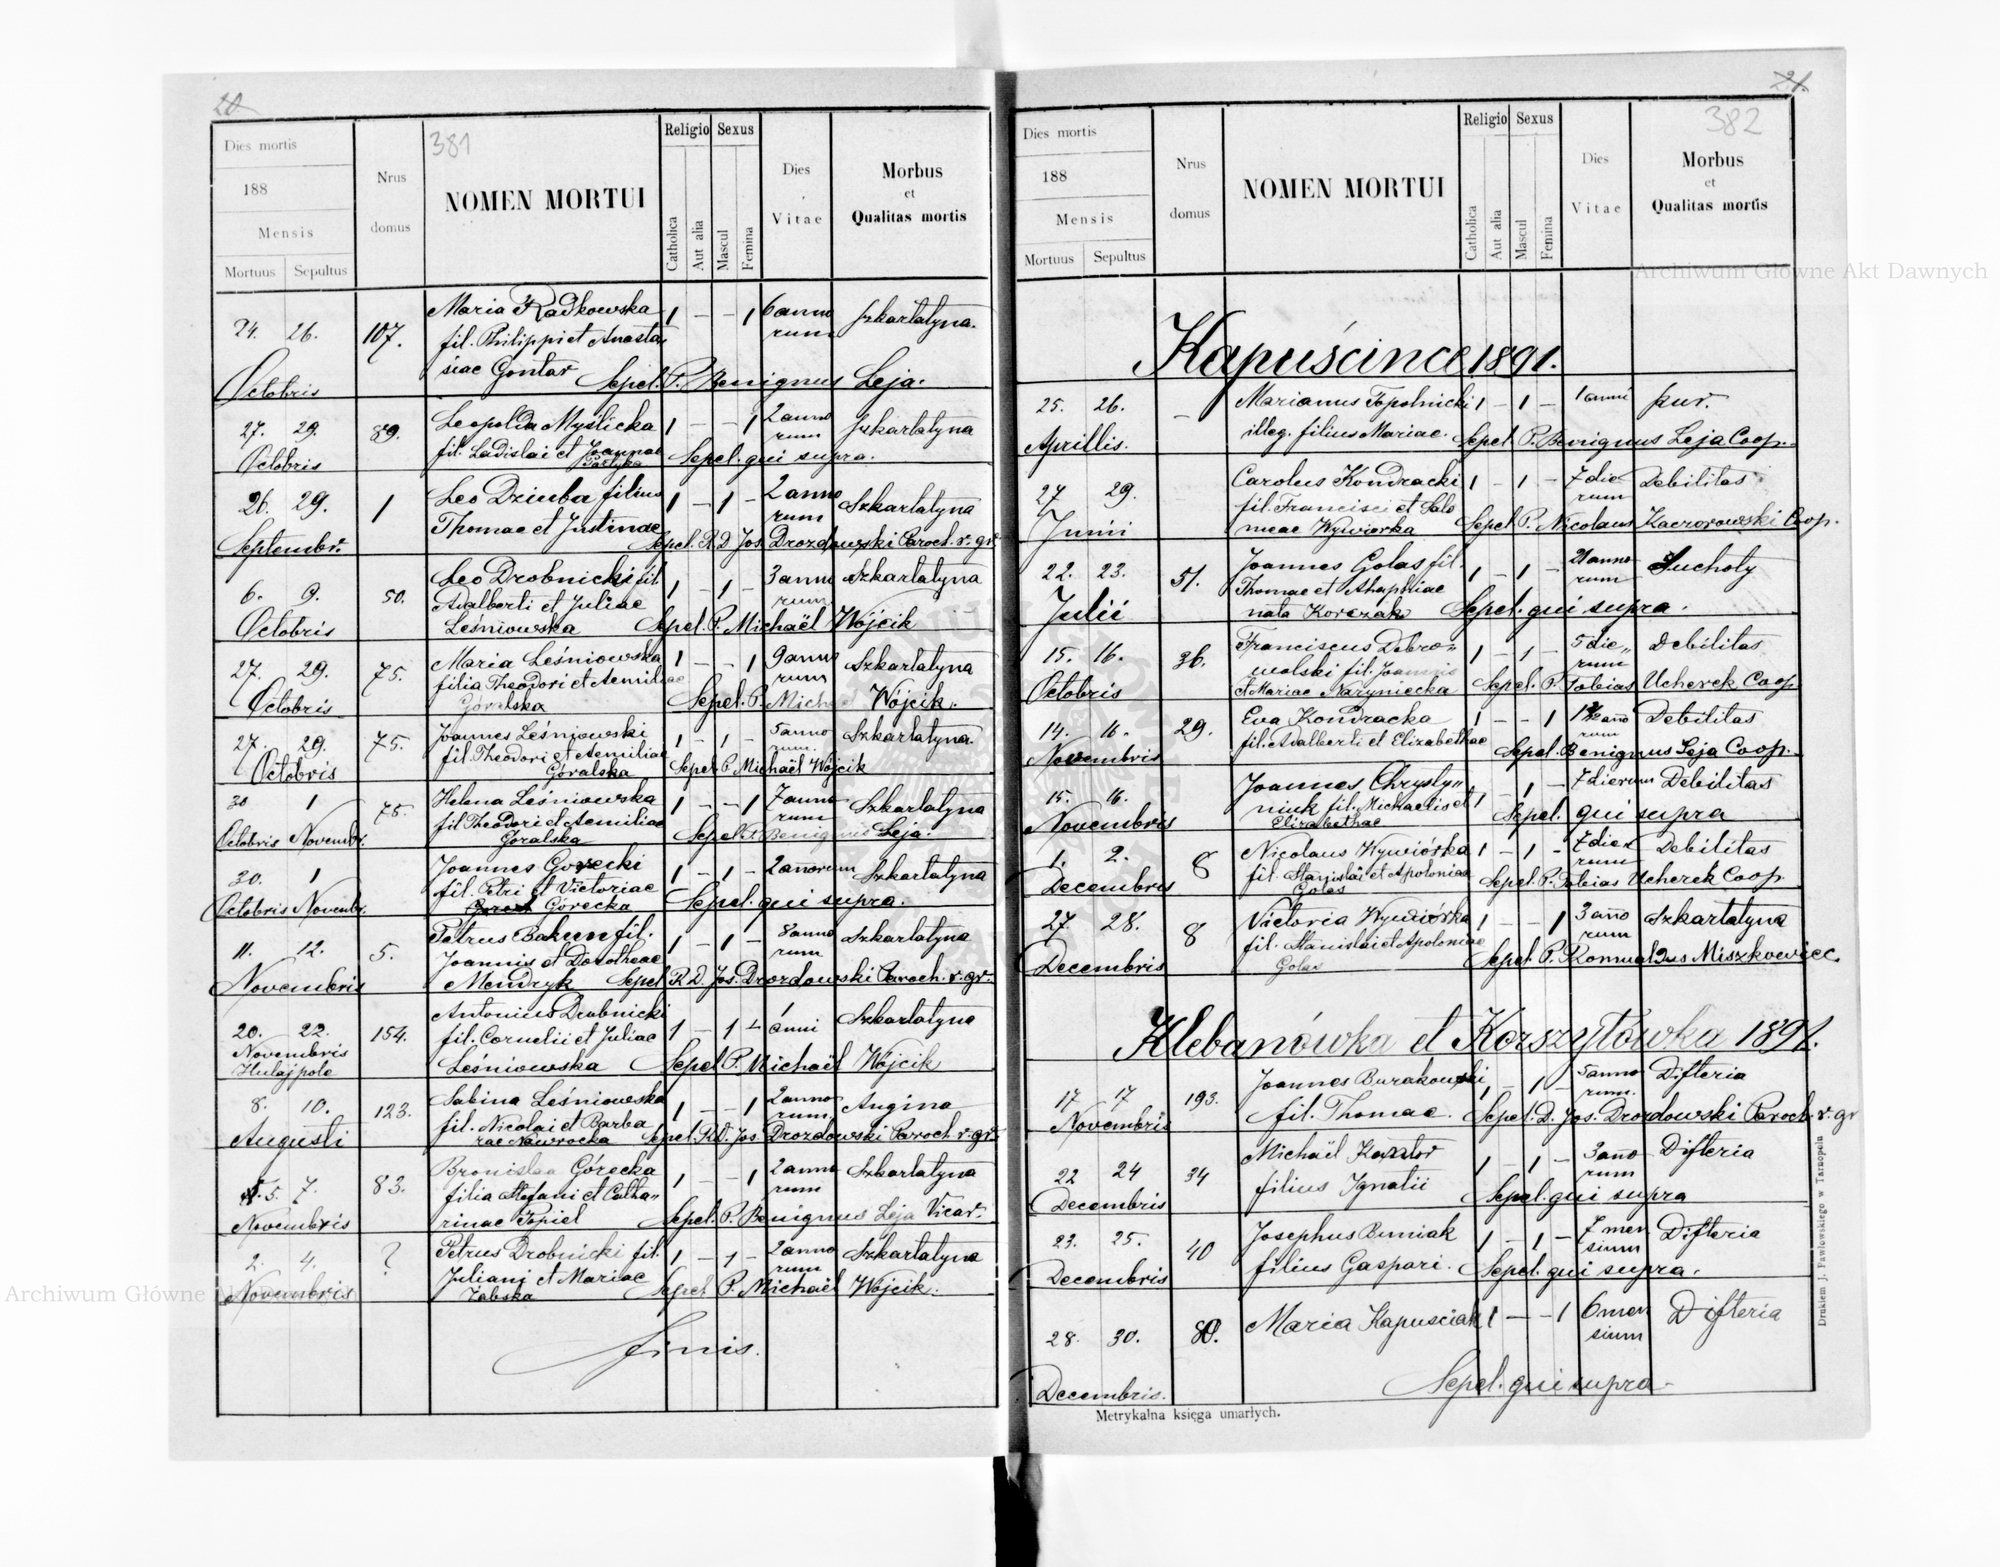 20
381
Dies mortis
188
Mensis
Mortuus Sepultus
Nrus
domus
NOMEN MORTUI
Religio Sexus
Catholica
Aut alia
Mascul
Femina
Dies
Vitae
Morbus
et
Qualitas mortis
24. 26. 107. Maria Radkowska 1 — — 1 6 anno Szkarlatyna.
fil. Philippi et Anasta rum
siae Gontar Sepel. P. Benignus Leja.
Octobris
27. 29. 89. Leopolda Myślicka 1 — — 1 2 anno Szkarlatyna
fil. Ladislai et Joannae rum
Octobris Partyka Sepel. qui supra.
26. 29. 1 Leo Dziuba filius 1 — 1 — 2 anno Szkarlatyna
Thomae et Justinae rum
Septembr. Sepel. R.D. Jos. Drozdowski Paroch. r. gr.
6. 9. 50. Leo Drobnicki fil. 1 — 1 — 3 anno Szkarlatyna
Adalberti et Juliae rum
Octobris Leśniowska Sepel. P. Michaël Wójcik
27. 29. 75. Maria Leśniowska 1 — — 1 9 anno Szkarlatyna
filia Theodori et Aemiliae rum
Octobris Góralska Sepel. P. Michaël Wójcik.
27. 29. 75. Joannes Leśniowski 1 — 1 — 5 anno Szkarlatyna.
fil. Theodori et Aemiliae rum.
Octobris Góralska Sepel. P. Michaël Wójcik
30 1 75. Helena Leśniowska 1 — — 1 7 anno Szkarlatyna
fil Theodori et Aemiliae rum
Octobris Novembr. Góralska Sepel. P. Benignus Leja.
30. 1 Joannes Gorecki 1 — 1 — 2 añorum Szkarlatyna
fil. Petri et Victoriae
Octobris Novembr. Górecka Sepel. qui supra.
11. 12. 5. Petrus Bakun fil. 1 — 1 — 8 anno Szkarlatyna
Joannis et Dorotheae rum
Novembris Mendryk Sepel R.D. Jos. Drozdowski Paroch. r. gr.
20. 22. 154. Antonius Drobnicki 1 — 1 — 1 anni Szkarlatyna
Novembris fil. Cornelii et Juliae
Hulajpole Leśniowska Sepel. P. Michaël Wójcik
8. 10. 123. Sabina Leśniowska 1 — — 1 2 anno Angina
fil. Nicolai et Barba rum.
Augusti rae Nawrocka Sepel. R.D. Jos. Drozdowski Paroch r. gr.
5. 7. 83. Bronislaa Górecka 1 — — 1 2 anno Szkarlatyna
filia Stefani et Catha„ rum
Novembris rinae Topiel Sepel. P. Benignus Leja Vicar.
2. 4. ? Petrus Drobnicki fil. 1 — 1 — 2 anno Szkarlatyna
Juliani et Mariae rum
Novembris Zabska Sepel P. Michaël Wójcik.
finis.
21.
382
Dies mortis
188
Mensis
Mortuus Sepultus
Nrus
domus
NOMEN MORTUI
Religio Sexus
Catholica
Aut alia
Mascul
Femina
Dies
Vitae
Morbus
et
Qualitas mortis
Kapuścince 1891.
25. 26. — Marianus Topolnicki 1 — 1 — 1 anni
Aprillis. illeg. filius Mariae. Sepel P. Benignus Leja Coop.
27 29. Carolus Kondracki 1 — 1 — 7 die Debilitas
fil. Francisci et Salo rum
Junii meae Wywiorka Sepel P. Nicolaus Kaczorowski Coop.
22. 23. 51. Joannes Golas fil. 1 — 1 — 21 anno Suchoty
Thomae et Ahaphiae rum
Julii nata Korczak Sepel. qui supra.
15. 16. 36. Franciscus Dobro„ 1 — 1 — 5 die„ Debilitas
wolski fil. Joannis rum
Octobris et Mariae Naryniecka Sepel. P. Tobias Ucherek Coop
14. 16. 29. Eva Kondracka 1 — — 1 1½ año Debilitas
fil. Adalberti et Elizabethae rum
Novembris Sepel. Benignus Leja Coop.
15. 16. Joannes Chrysty„ 1 — 1 — 7 dierum Debilitas
niuk fil. Michaelis et
Novembris Elizabethae Sepel. qui supra
1. 2. 8 Nicolaus Wywiórka 1 — 1 — 7 die Debilitas
fil. Stanislai et Apoloniae rum
Decembris Golas Sepel. P. Tobias Ucherek Coop.
27. 28. 8 Victoria Wywiórka 1 — — 1 3 año Szkarlatyna
fil. Stanislai et Apoloniae rum
Decembris Golas Sepel. P. Romualdus Miszkowiec.
Klebanówka et Korszyłówka 1891.
17 17 193. Joannes Burakowski 1 — 1 — 5 anno Difteria
fil. Thomae. rum.
Novembris Sepel. D. Jos. Drozdowski Paroch. r. gr
22 24 34 Michaël Kantor 1 — 1 — 3 año Difteria
filius Ignatii rum
Decembris Sepel. qui supra
23. 25. 40 Josephus Buniak 1 — 1 — 7 men Difteria
filius Gaspari. sium
Decembris Sepel. qui supra.
28. 30. 80. Maria Kapusciak 1 — — 1 6 men Difteria
sium
Decembris. Sepel. qui supra
Metrykalna księga umarłych.
Drukiem J. Pawłowskiego w Tarnopolu
Archiwum Główne Akt Dawnych
Archiwum Główne